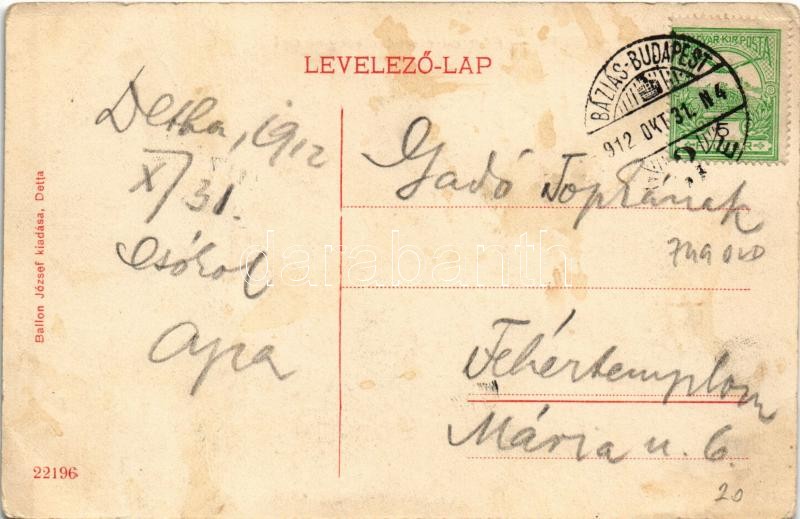 LEVELEZŐ-LAP
MAGYAR KIR. POSTA
BÁZIÁS-BUDAPEST
912 OKT. 31. N4
5
Detha, 1912
X/31.
csókol
apa
Gadó Zsófiának
Fehértemplom
Mária u. 6.
20
22196
Ballon József kiadása, Detta
darabanth